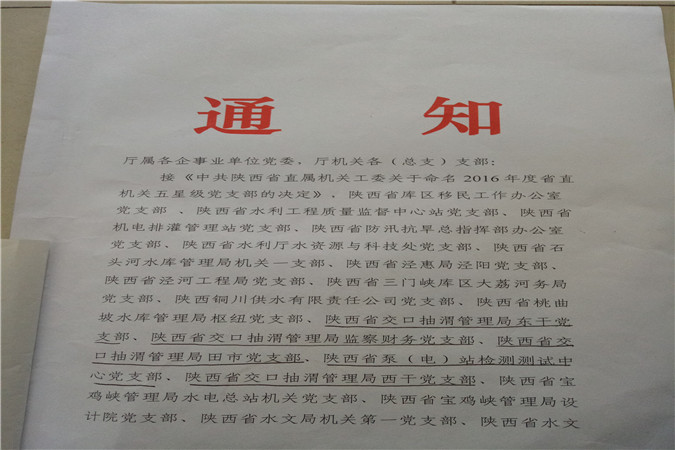 通 知
厅属各企事业单位党委、厅机关各（总支）支部：
按《中共陕西省直属机关工委关于命名2016年度省直
机关五星级党支部的决定》、陕西省库区移民工作办公室
党支部、陕西省水利工程质量监督中心站党支部、陕西省
机电排灌管理站党支部、陕西省防汛抗旱总指挥部办公室
党支部、陕西省水利厅水资源与科技处党支部、陕西省石
头河水库管理局机关一支部、陕西省泾惠局泾阳党支部、
陕西省泾河工程局党支部、陕西省三门峡库区大荔河务局
党支部、陕西铜川供水有限责任公司党支部、陕西省桃曲
坡水库管理局枢纽党支部、陕西省交口抽渭管理局东干党
支部、陕西省交口抽渭管理局监察财务党支部、陕西省交
口抽渭管理局田市党支部、陕西省泵（电）站检测测试中
心党支部、陕西省交口抽渭管理局西干党支部、陕西省宝
鸡峡管理局水电总站机关党支部、陕西省宝鸡峡管理局设
计院党支部、陕西省水文局机关第一党支部、陕西省水文